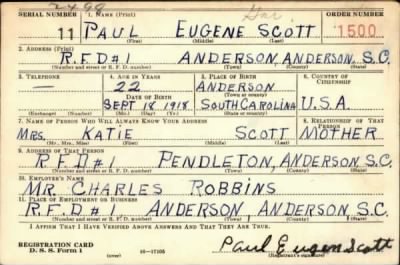 2498
SERIAL NUMBER 1. NAME (Print) ORDER NUMBER
11 PAUL EUGENE SCOTT 1500
(First) (Middle) (Last)
2. ADDRESS (Print)
R.F.D#1 ANDERSON, ANDERSON, S.C.
(Number and street or R. F. D. number) (Town) (County) (State)
3. TELEPHONE 4. AGE IN YEARS 5. PLACE OF BIRTH 6. COUNTRY OF CITIZENSHIP
— 22 ANDERSON
DATE OF BIRTH (Town or county)
SEPT 18 1918 SOUTH CAROLINA U.S.A.
(Exchange) (Number) (Mo.) (Day) (Yr.) (State or country)
7. NAME OF PERSON WHO WILL ALWAYS KNOW YOUR ADDRESS 8. RELATIONSHIP OF THAT PERSON
MRS. KATIE SCOTT MOTHER
(Mr., Mrs., Miss) (First) (Middle) (Last)
9. ADDRESS OF THAT PERSON
R.F.D#1 PENDLETON, ANDERSON, S.C.
(Number and street or R. F. D. number) (Town) (County) (State)
10. EMPLOYER'S NAME
MR. CHARLES ROBBINS
11. PLACE OF EMPLOYMENT OR BUSINESS
R.F.D. #1 ANDERSON ANDERSON S.C.
(Number and street or R. F. D. number) (Town) (County) (State)
I AFFIRM THAT I HAVE VERIFIED ABOVE ANSWERS AND THAT THEY ARE TRUE.
REGISTRATION CARD
D. S. S. Form 1 16—17105 Paul Eugene Scott
(Registrant's signature)